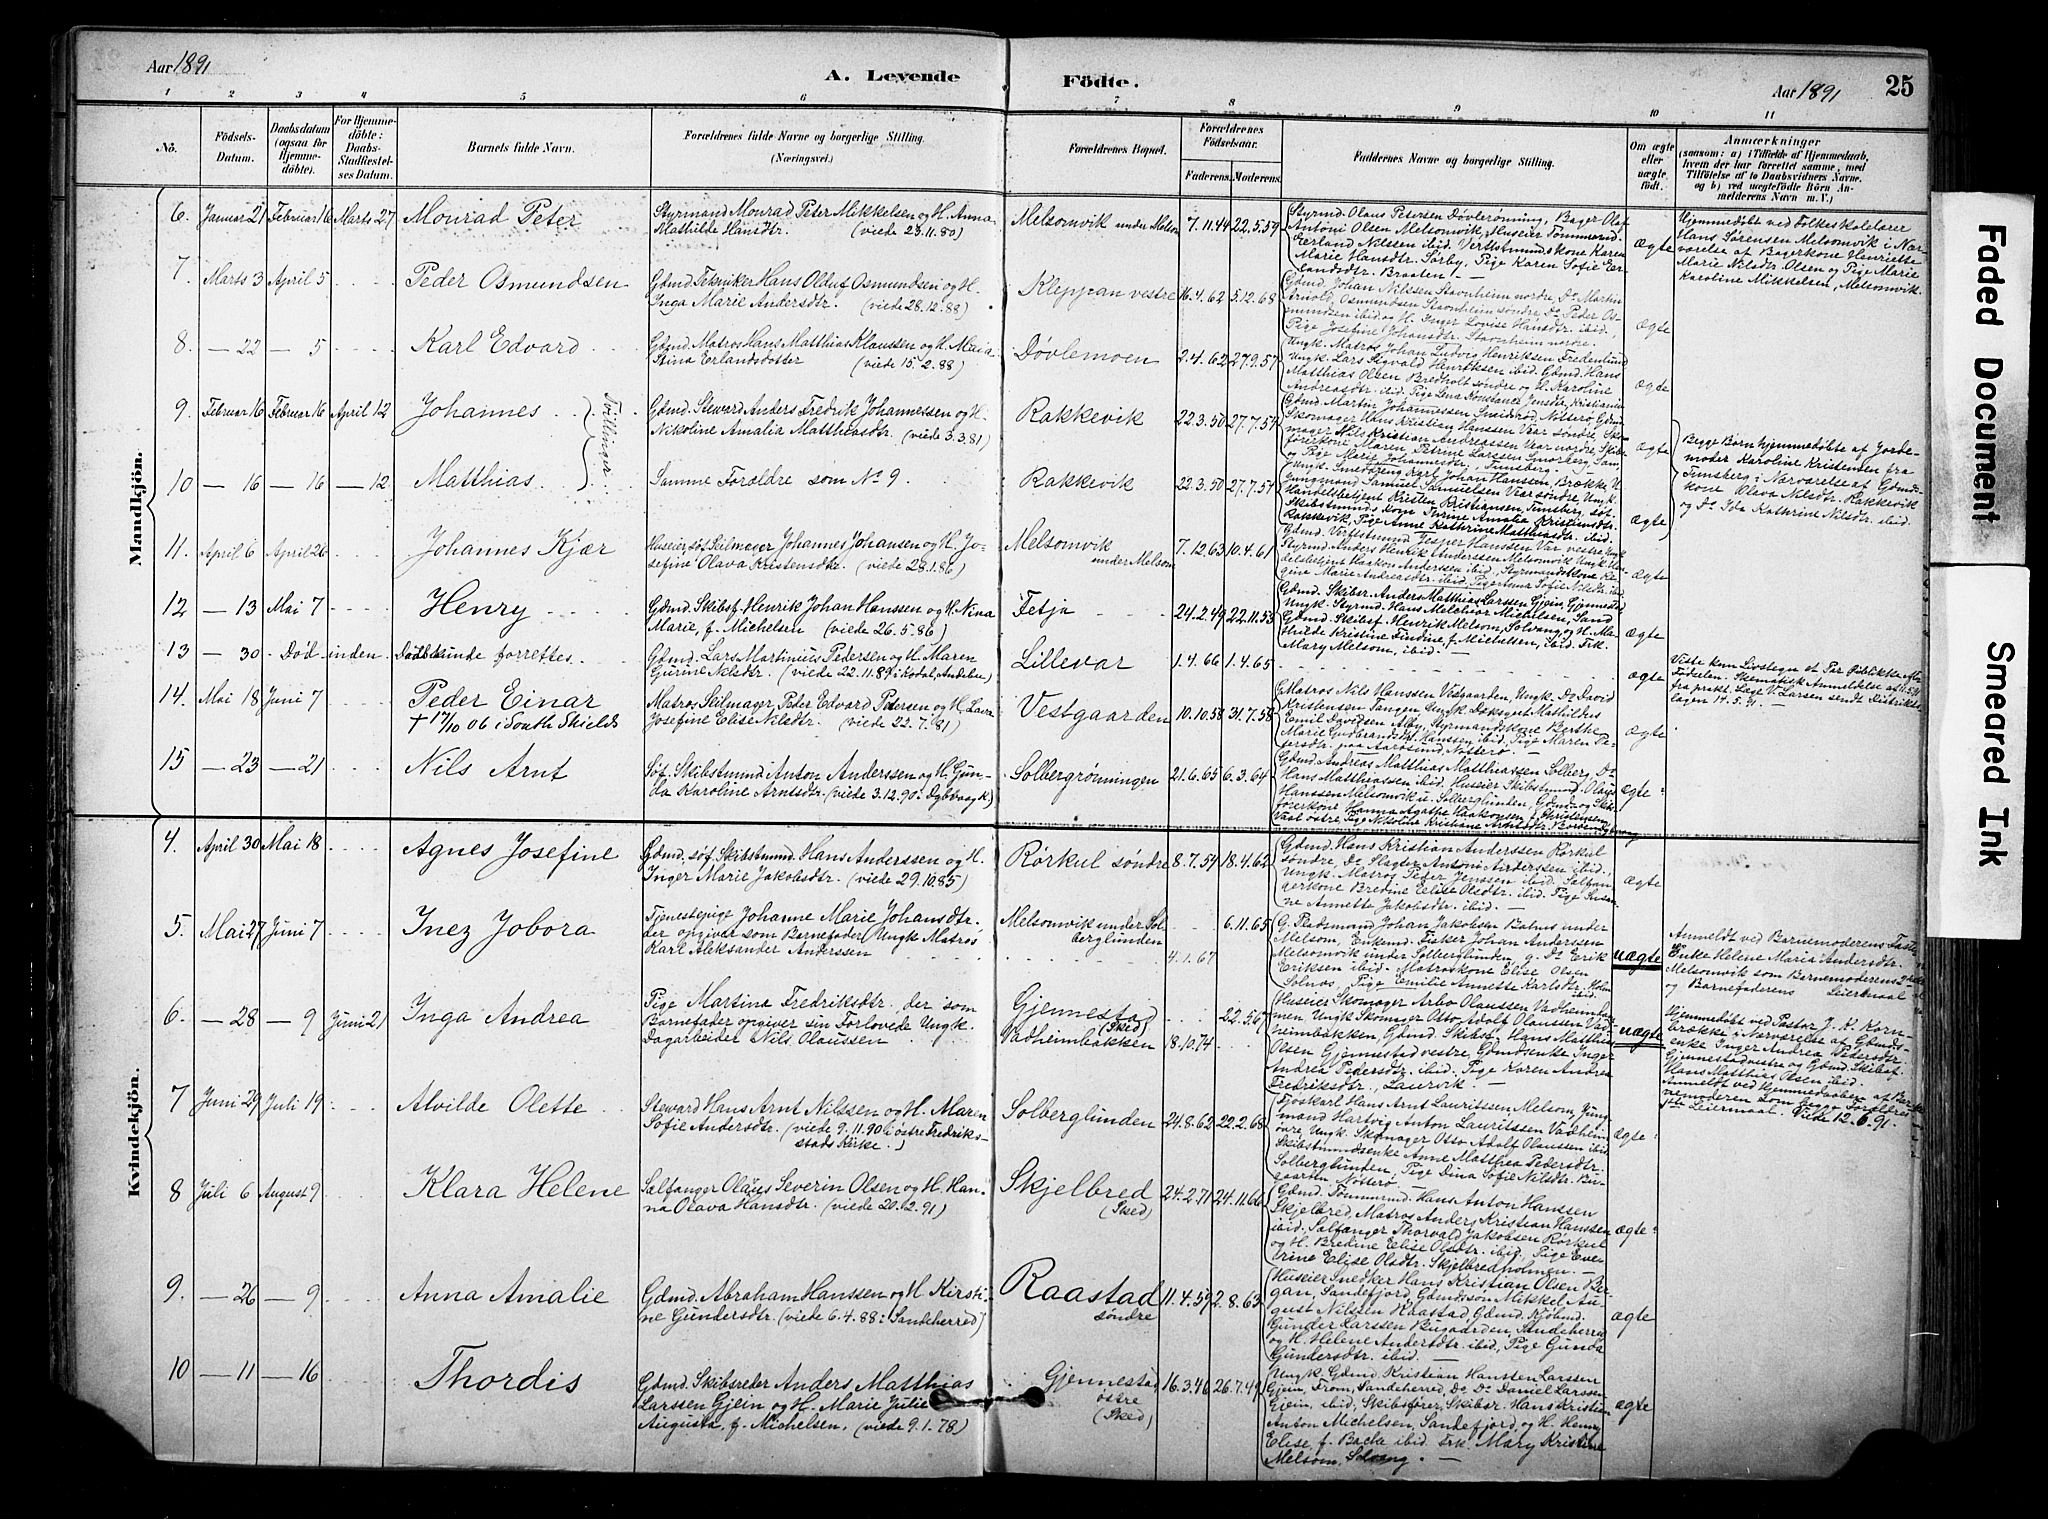 Aar 1891
A. Levende Födte.
Aar 1891
25
1 2 3 4 5 6 7 8 9 10 11
No.
Födsels-Datum.
Daabsdatum (ogsaa för Hjemmedöbte).
For Hjemmedöbte: Daabs-Stadfæstelses Datum.
Barnets fulde Navn.
Forældrenes fulde Navne og borgerlige Stilling.
(Næringsvei.)
Forældrenes Bopæl.
Forældrenes Födselsaar.
Faderens.
Moderens.
Faddernes Navne og borgerlige Stilling.
Om ægte eller uægte födt.
Anmærkninger
(saasom: a) i Tilfælde af Hjemmedaab, hvem der har forrettet samme, med Tilföielse af to Daabsvidners Navne. og b) ved uægtefödte Börn Anmelderens Navn m. V.)
Mandkjön.
6. Januar 21 Februar 16 Marts 27 Monrad Peter
Styrmand Monrad Peter Mikkelsen og H. Anna
Mathilde Hansdtr. (viede 28.11.80)
Melsomvik under Melsom 7.11.44 22.5.59
Styrmd. Olaus Petersen Døvlerønning, Bager Olaf
Antoni Olsen Melsomvik, Huseier Tømmermd.
Erland Nilssen ibid. Verftsmundskone Karen
Marie Hansdtr. Sørby, Pige Karen Sofie Er-
landsdtr. Braaten
ægte
Hjemmedøbt ved Folkeskolelærer
Hans Sørensen Melsomvik i Nær-
værelse af Bagerkone Henriette
Marie Nilsdtr. Olsen og Pige Marie
Karoline Mikkelsen, Melsomvik.
7. Marts 3 April 5 Peder Osmundsen
Gdmd. Tekniker Hans Oluf Osmundsen og H.
Inga Marie Andersdtr. (viede 28.12.88)
Kleppan vestre 16.4.62 5.12.68
Gdmd. Johan Nilssen Stavnheim nordre, Do Martin
Arnold Osmundsen Stavnheim søndre, Do Peder Os-
mundsen ibid og H. Inger Lovise Hansdtr. ibid.
Pige Josefine Johansdtr. Stavnheim nordre.
ægte
8. — 22 — 5 Karl Edvard
Gdmd. Matros Hans Matthias Klaussen og H. Maia
Stina Erlandsdotter (viede 15.2.88)
Døvlemoen 2.4.62 27.9.57
Ungk. Matros Johan Ludvig Henriksen Fredenlund
Ungk. Lars Sigvald Henriksen ibid. Gdmd. Hans
Matthias Olsen Bredholt søndre og H. Karoline
Andreasdtr. ibid. Pige Lena Konstance Jensdtr. Kristiania
ægte
9. Februar 16 Februar 16 April 12 Johannes
Tvillinger
Gdmd. Steward Anders Fredrik Johannessen og H.
Nikoline Amalia Matthiasdtr. (viede 3.3.81)
Rakkevik 22.3.50 27.7.57
Gdmd. Martin Johannessen Sneidrød, Nøtterø, Gdmd.
Skomager Hans Kristian Hanssen Vear søndre, Sko-
mager Nils Kristian Andreassen Vear nordre, Skibs-
førerkone Maren Petrine Larssen Smørberg, Sam-
og Pige Marie Johannesdtr., Tunsberg.
ægte
Begge Børn hjemmedøbte af Jorde-
moder Karoline Kristensen fra
Tunsberg i Nærværelse af Gdmds-
kone Olava Nilsdtr. Rakkevik
og Do Ida Kathrine Nilsdtr. ibid.
10 — 16 — 16 — 12 Matthias
Samme Forældre som No 9
Rakkevik 22.3.50 27.7.57
Ungk. Smeddreng Karl Johan Hanssen, Brække U
Ungmand Samuel Samuelsen Vear søndre, Ungk.
Handelsbetjent Kristen Kristiansen, Tunsberg, søf.
Skibstmunds Kone Thrine Amalia Kristensdtr.
Rakkevik, Pige Anne Kathrine Matthiasdtr. ibid.
ægte
11. April 6 April 26 Johannes Kjær
Huseier, søf. Seilmager Johannes Johansen og H. Jo-
sefine Olava Kristensdtr. (viede 28.1.86)
Melsomvik
under Melsom
7.12.63 10.4.61
Gdmd. Verftsmund Jesper Hanssen Vær vestre, Ungk.
Styrmd. Anders Henrik Anderssen Melsomvik, Ungk. Han-
delsbetjent Haakon Anderssen ibid. Styrmandskone Re-
gine Marie Andreasdtr. ibid. Pige Anna Sofie Nilsdtr. ibid
ægte
12 — 13 Mai 7 Henry
Gdmd. Skibsf. Henrik Johan Hanssen og H. Nina
Marie, f. Michelsen (viede 26.5.86)
Fetja 24.2.49 22.11.53
Gdmd. Skibsr. Anders Matthias Larssen Gjein, Gjennestad
Ungk. Styrmd. Hans Melchior Michelsen, Sand
Gdmd. Skibsf. Henrik Melsom, Solvang og H. Ma-
thilde Kristine Findine, f. Michelsen, ibid. Frk.
Mary Melsom, ibid.
ægte
13 — 30 Død inden Daab kunde forrettes.
Gdmd. Lars Martinius Pedersen og H. Maren
Gurine Nilsdtr. (viede 22.11.89 i Kodal, Andebu)
Lillevar 1.4.66 1.4.65
ægte
Viste kun Livstegn et Par Øiblikke efter
Fødselen. Skematisk Anmeldelse af 11.5.91
fra prakt. Læge V. Larsen sendt Distrikts-
lægen 14.5.91.
14. Mai 18 Juni 7 Peder Einar
† 17/10 06 i South Shields
Matros Seilmager, Peder Edvard Petersen og H. Laura
Josefine Elise Nilsdtr. (viede 22.7.81)
Vestgaarden 10.10.58 31.7.58
Matros Nils Hanssen Vestgaarden, Ungk. Do David
Kristensen Tangen, Ungk. Dæksgut Mathildus
Emil Davidsen Alby, Styrmandskone Berthe
Marie Gudbrandsdtr. Hanssen ibid. Pige Maren Pe-
dersdtr. paa Aarøsund, Nøtterø
ægte
15 — 23 — 21 Nils Arnt
Søf. Skibstmund Anton Anderssen og H. Gun-
da Karoline Arntsdtr. (viede 3.12.90 i Dybvaag K)
Solbergrønningen 21.6.65 6.3.64
Gdmd. Andreas Matthias Matthiassen Solberg, Do
Hans Matthiassen ibid. Huseier Skibstmund. Olaus
Hanssen Melsomvik u. Solberglunden, Gdmd. og Skibs-
førerkone Hanna Agathe Haakonsen f. Christensen,
Vaal østre, Pige Nikoline Kristiane Arntsdtr.
ægte
Kvindekjön.
4. April 30 Mai 18 Agnes Josefine
Gdmd. søf. Skibstmund. Hans Anderssen og H.
Inger Marie Jakobsdtr. (viede 29.10.85)
Rørkul søndre 8.7.54 18.4.62
Gdmd. Hans Kristian Anderssen Rørkul
søndre, Do Slagter Antoni Anderssen ibid.,
Ungk. Matros Peder Jenssen ibid. Salfan-
gerkone Bredine Elise Olsdtr. ibid. Pige Susan-
ne Annette Jakobsdtr. ibid.
ægte
5. Mai 27 Juni 7 Inez Jobora
Tjenestepige Johanne Marie Johansdtr.
der opgiver som Barnefader Ungk. Matros
Karl Aleksander Anderssen
Melsomvik under Sol-
berglunden
6.11.65
4.1.67
G. Pladsmand Johan Jakobsen Bahus under
Melsom, Enkemd. Fisker Johan Anderssen
Melsomvik under Solberglunden, g. Do Erik
Eriksen ibid. Matroskone Elise Olsen
Solnæs, Pige Emilie Annette Karlsdtr. Holm
ibid.
uægte
Anmeldt ved Barnemoderens Faster
Enke Helene Maria Andersdtr.
Melsomvik som Barnemoderens 2det
og Barnefaderens Leiermaal
6. — 28 — 9 Juni 21 Inga Andrea
Pige Martina Fredriksdtr. der som
Barnefader opgiver sin Forlovede Ungk.
Dagarbeider Nils Olaussen
Gjennestad
(Sked)
Vadheimbakken
22.5.67
18.10.74
Huseier Skomager Arbo Olaussen Vadheimham-
men, Ungk. Skomager Otto Adolf Olaussen Vad-
heimbakken, Gdmd. Skibsf. Hans Matthias
Olsen Gjennestad vestre, Gdmdsenke Inger
Andrea Pedersdtr. ibid. Pige Karen Andrea
Fredriksdtr., Laurvik.
uægte
Hjemmedøbt ved Pastor J. K. Korn-
brække i Nærværelse af Gdmds-
enke Inger Andrea Pedersdtr.
Gjennestad vestre og Gdmd. Skibsf.
Hans Matthias Olsen ibid.
Anmeldt ved Hjemmedaaben af Bar-
nemoderen som begge Forældres
1ste Leiermaal. Viede 12.6.91.
7 Juni 29 Juli 19 Alvilde Olette
Steward Hans Arnt Nilssen og H. Maren
Sofie Andersdtr. (viede 9.11.90 i østre Fredrik-
stads Kirke.)
Solberglunden 24.8.62 22.2.68
Fjøskarl Hans Arnt Lauritssen Melsom, Ung-
mand Hartvig Anton Lauritssen Vadheim
øvre, Ungk. Skomager Otto Adolf Olaussen ibid
Skibstmundsenke Anne Matthea Pedersdtr.
Solberglunden, Pige Dina Sofie Nilsdtr. Bu-
gaarden, Nøtterø.
ægte
8 Juli 6 August 9 Klara Helene
Salfanger Olaus Severin Olsen og H. Han-
na Olava Hansdtr. (viede 20.2.91)
Skjelbred
(Sked)
24.2.71 24.11.66
Gdmd. Tømmermd. Hans Anton Hanssen
Skjelbred, Matros Anders Kristian Hanssen
ibid. Salfanger Thorvald Jakobsen Rørkul
og H. Bredine Elise Olsdtr. ibid. Pige Eve-
trine Elise Olsdtr. Skjelbredholmen.
ægte
9. — 26 — 9 Anna Amalie
Gdmd. Abraham Hanssen og H. Kirsti-
ne Gundersdtr. (viede 6.4.88 i Sandeherred)
Raastad
søndre
11.4.59 2.8.63
Huseier Snedker Hans Kristian Olsen Ber-
gan, Sandefjord, Gdmdssøn Mikkel Au-
gust Nilsen Raastad, Gdmd. Kjøbmd.
Gunder Larssen Bugaarden, Sandeherred
og H. Helene Andersdtr. ibid, Pige Gunda
Gundersdtr. ibid.
ægte
10 — 11 — 16 Thordis
Gdmd. Skibsreder Anders Matthias
Larssen Gjein og H. Marie Julie
Augusta, f. Michelsen, (viede 9.1.78)
Gjennestad
østre
(Sked)
16.3.46 26.7.49
Ungk. Gdmd. Kristian Hansten Larssen
Gjein, From, Sandeherred, Do. Do Daniel Larssen
Gjein, ibid, Skibsfører, Skibsr. Hans Kristian
Anton Michelsen, Sandefjord, og H. Henny
Elise, f. Backe ibid. Frk. Mary Kristine
Melsom, Solvang.
ægte
Faded Document
Smeared Ink